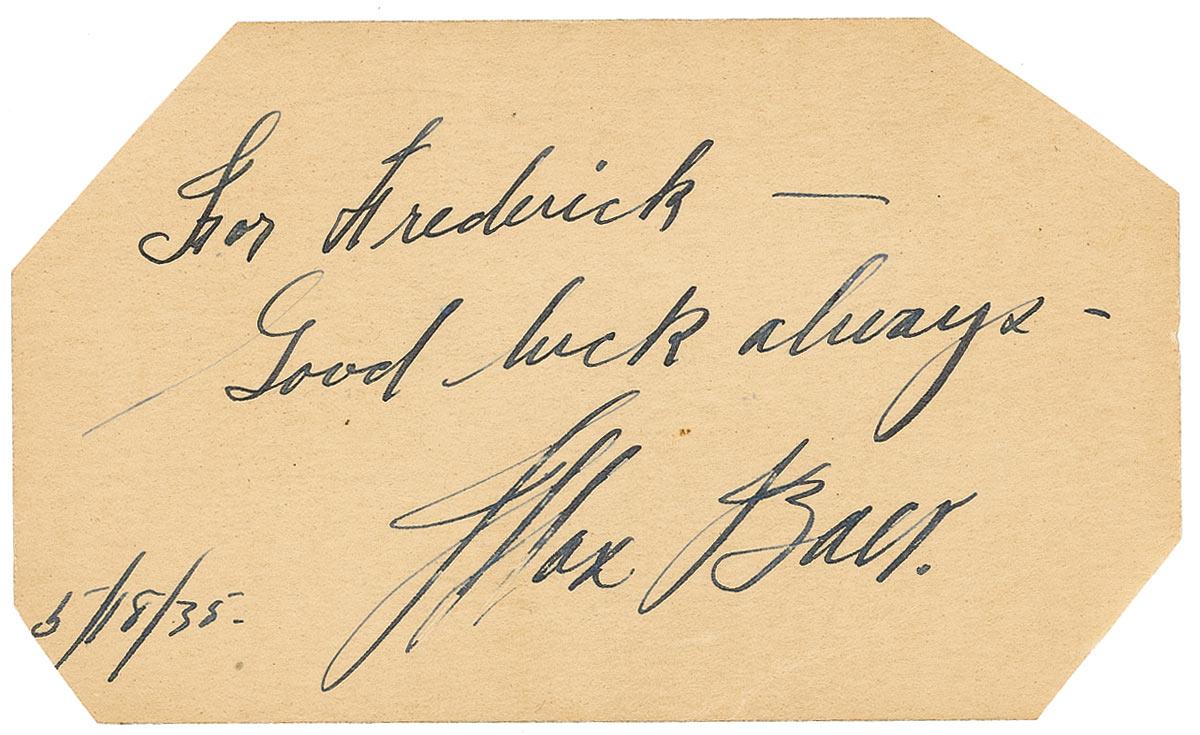 For Frederick —
Good luck always -
Max Baer.
5/18/35-